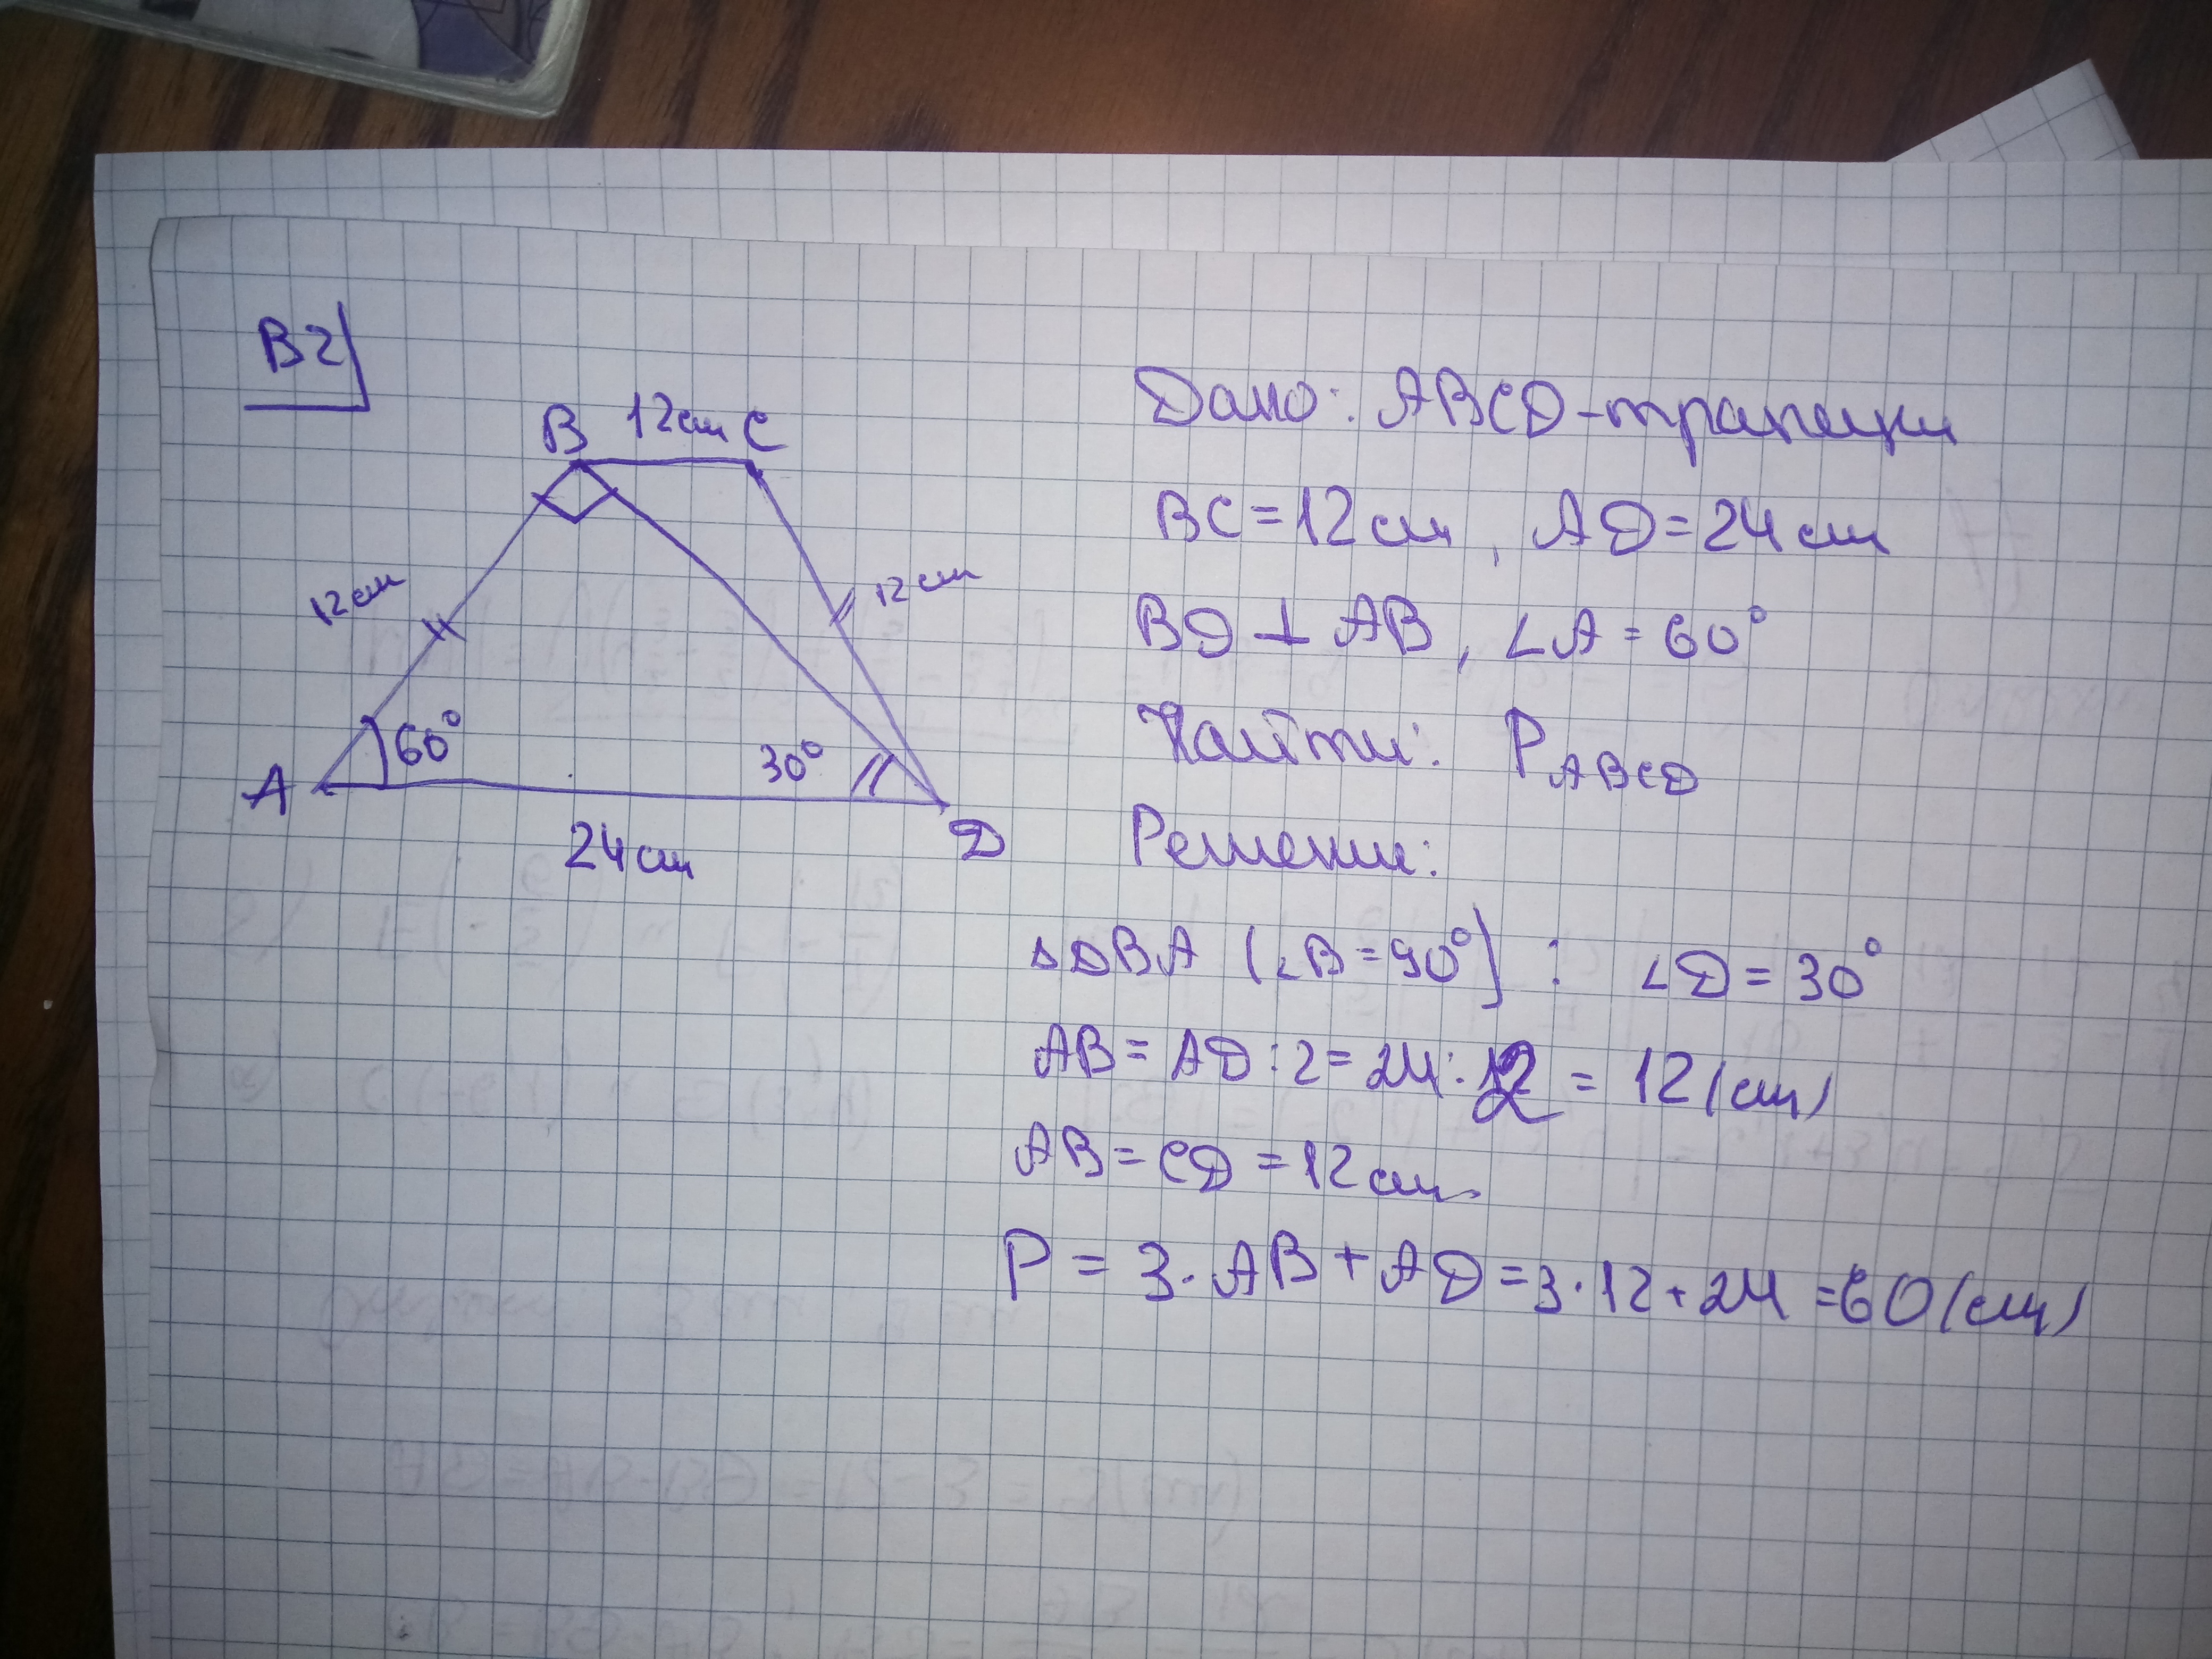 В2
B 12см C
12см
12см
60°
30°
A
D
24см
Дано: ABCD-трапеция
BC=12см, AD=24см
BD⊥AB, ∠A=60°
Найти: P ABCD
Решение:
△DBA (∠B=90°): ∠D=30°
AB=AD:2=24:2=12(см)
AB=CD=12см.
P=3·AB+AD=3·12+24=60(см)